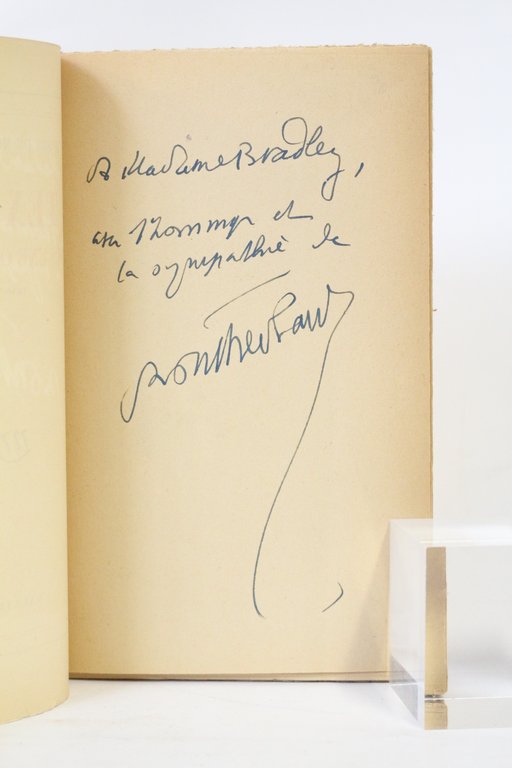 A Madame Bradley,
avec l'hommage et
la sympathie de
Montherlant